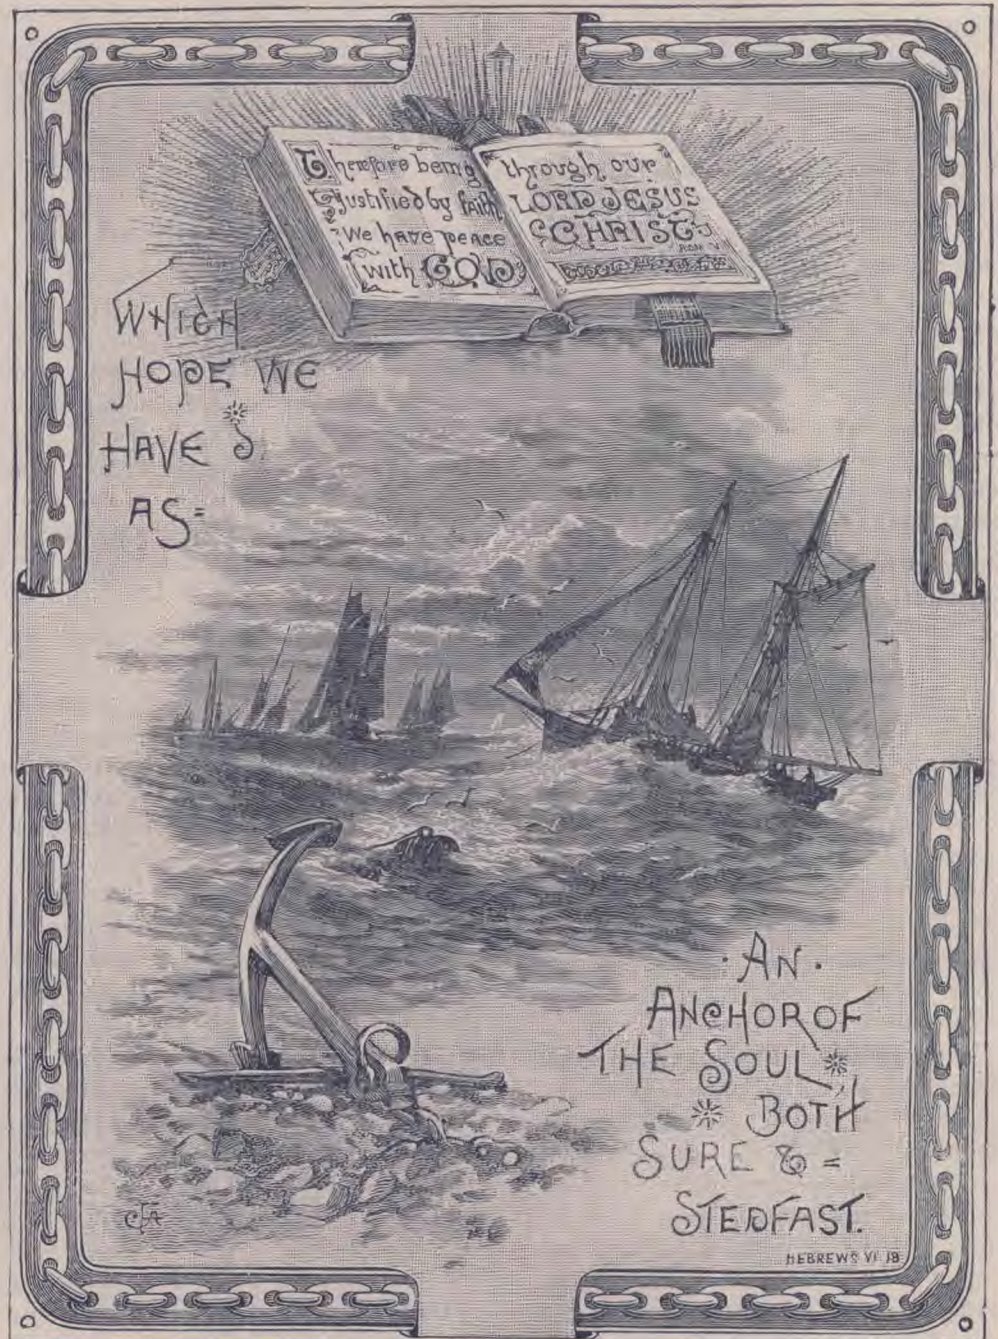 Therefore being
justified by faith
we have peace
with GOD
through our
LORD JESUS
CHRIST
ROM V
WHICH
HOPE WE
HAVE
AS=
·AN·
ANCHOR OF
THE SOUL
BOTH
SURE & =
STEDFAST.
HEBREWS VI 19
CFA